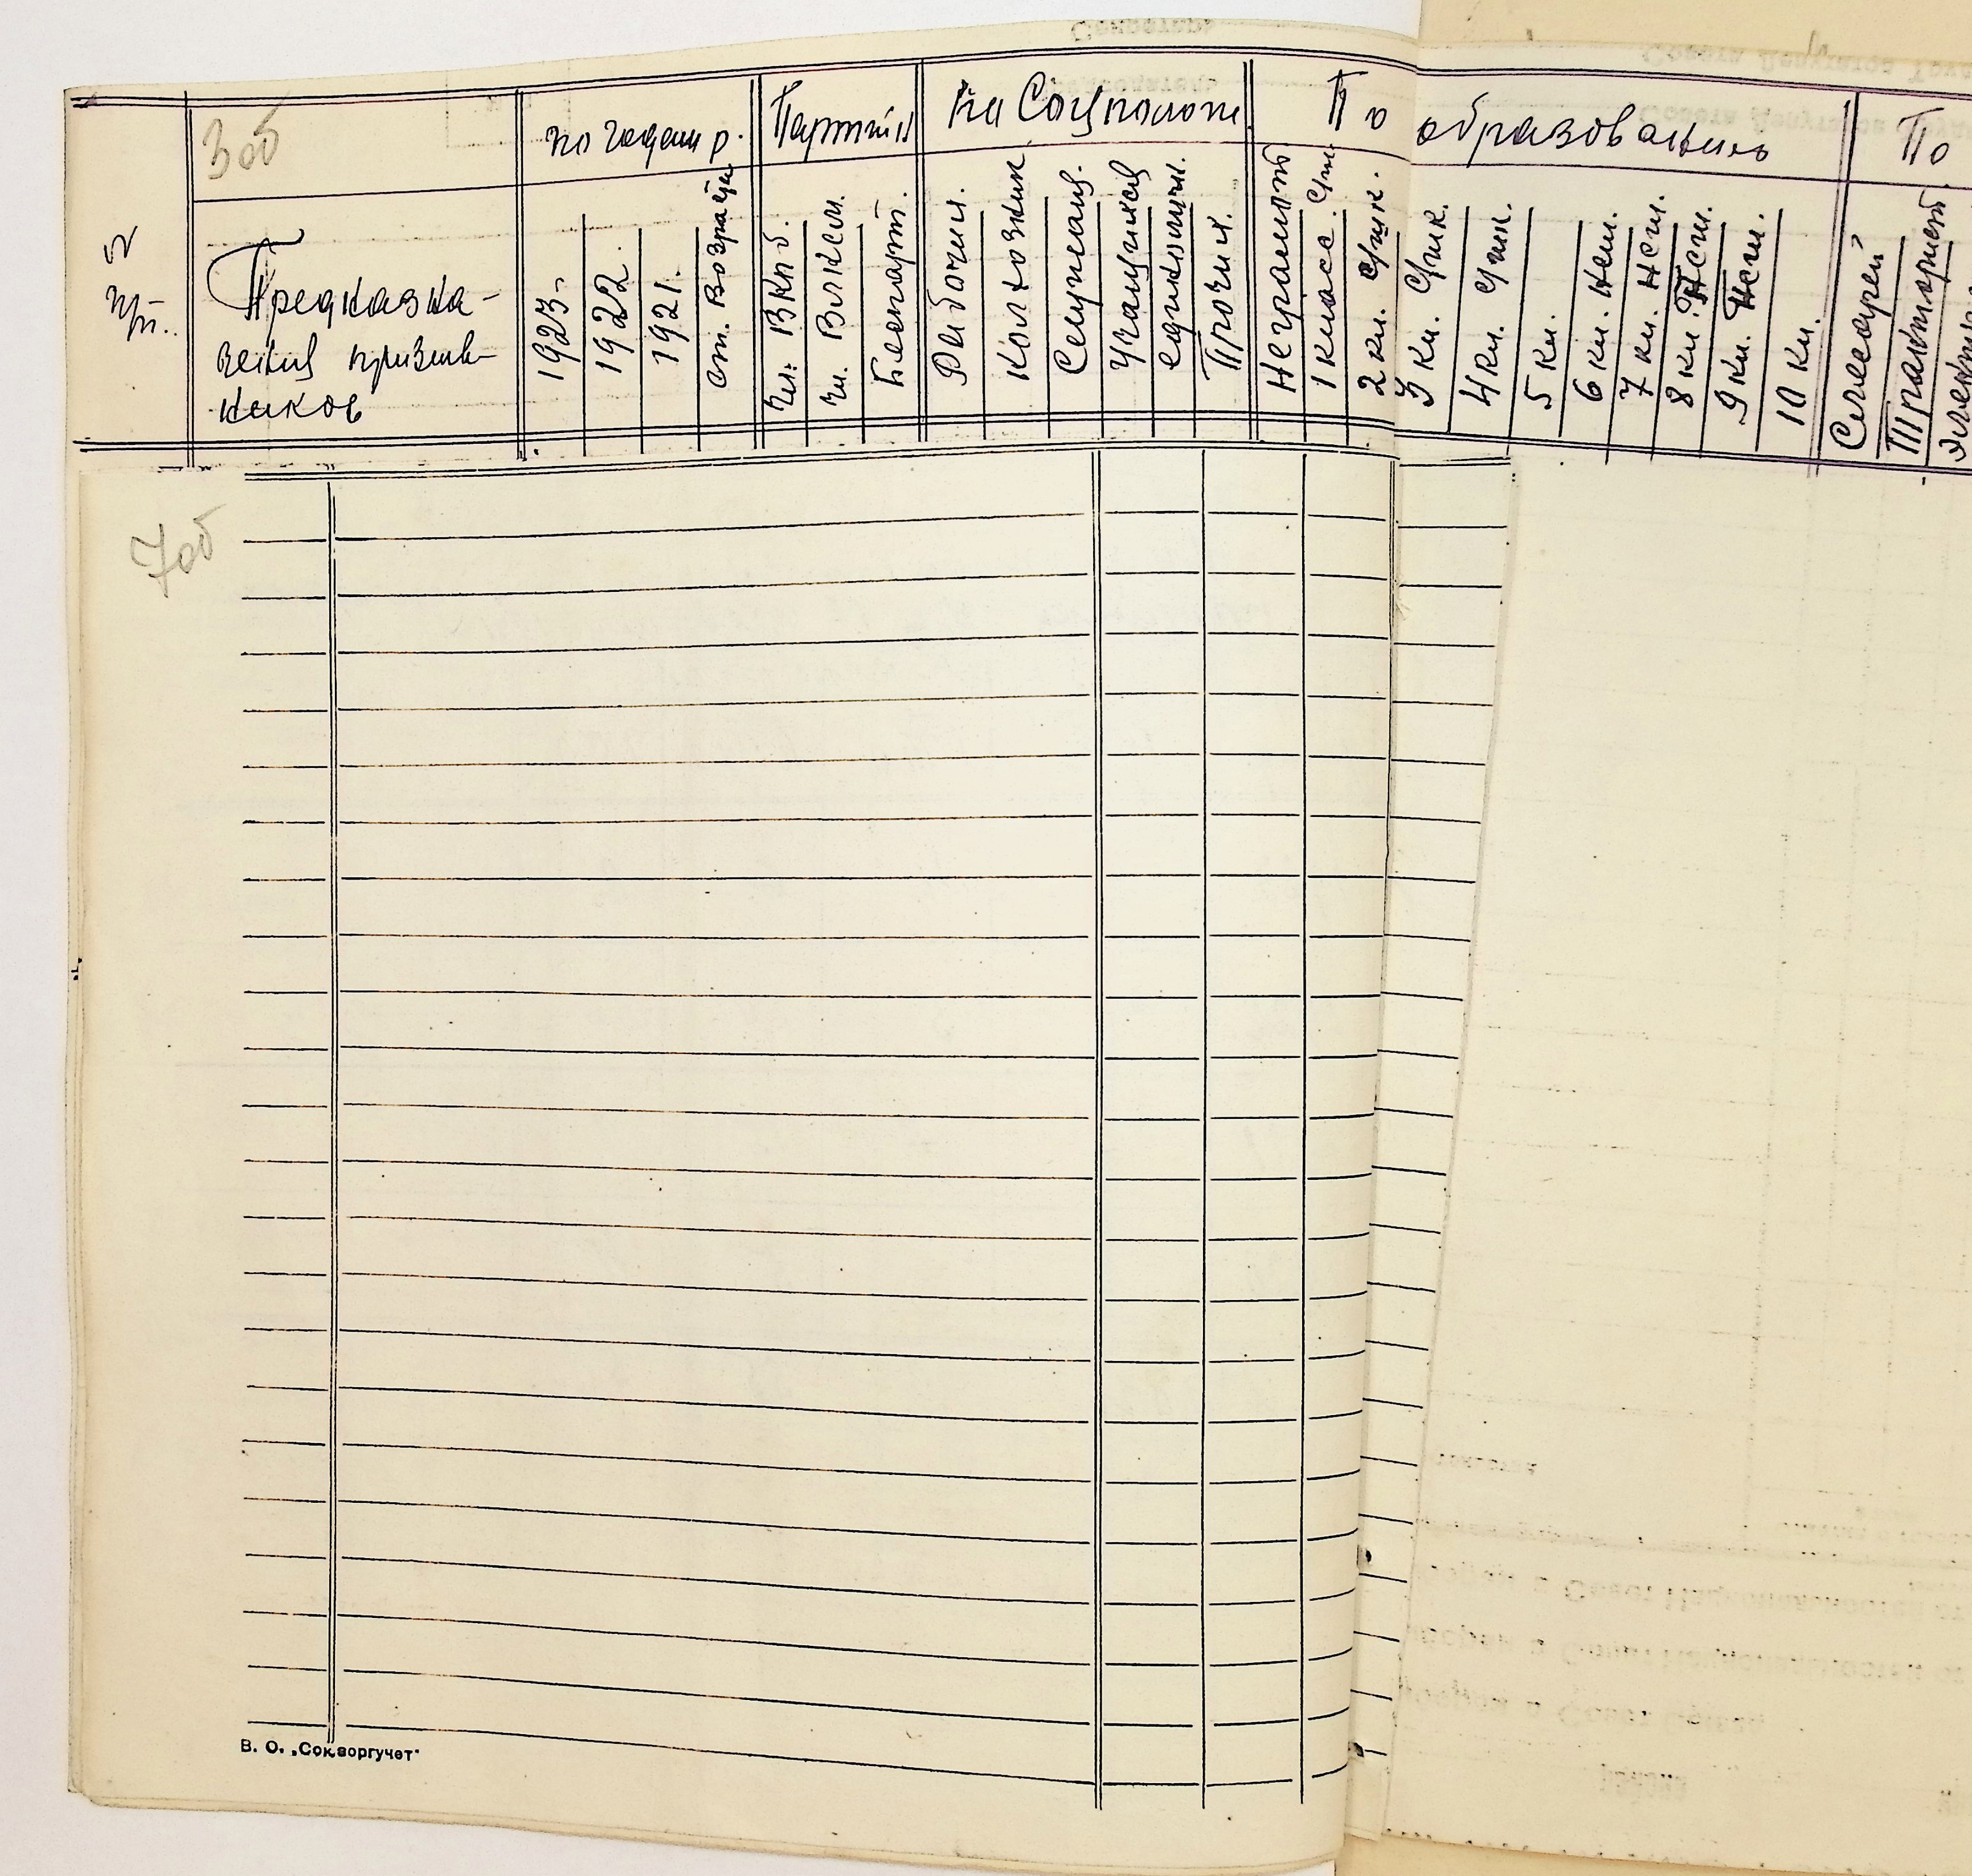 3об
№
пп.
Предказва-
зения призыв-
ников
по годам р.
1923
1922
1921.
ст. Возраста
Партийн
Чл. ВКПб.
Чл. ВЛКСМ.
Беспарт.
На Соцположе
Рабочих.
Колхозник
Служащ.
Учащихся
единоличн.
Прочих.
По образованию
Неграмотн
1 класс. С/шк
2 кл. С/шк.
3 кл. С/шк.
4 кл. С/шк.
5 кл.
6 кл. Нсш.
7 кл. Нсш.
8 кл. Нсш.
9 кл. Нсш.
10 кл.
По
Слесарей
Тракторист
7об
В. О. „Союзоргучет"